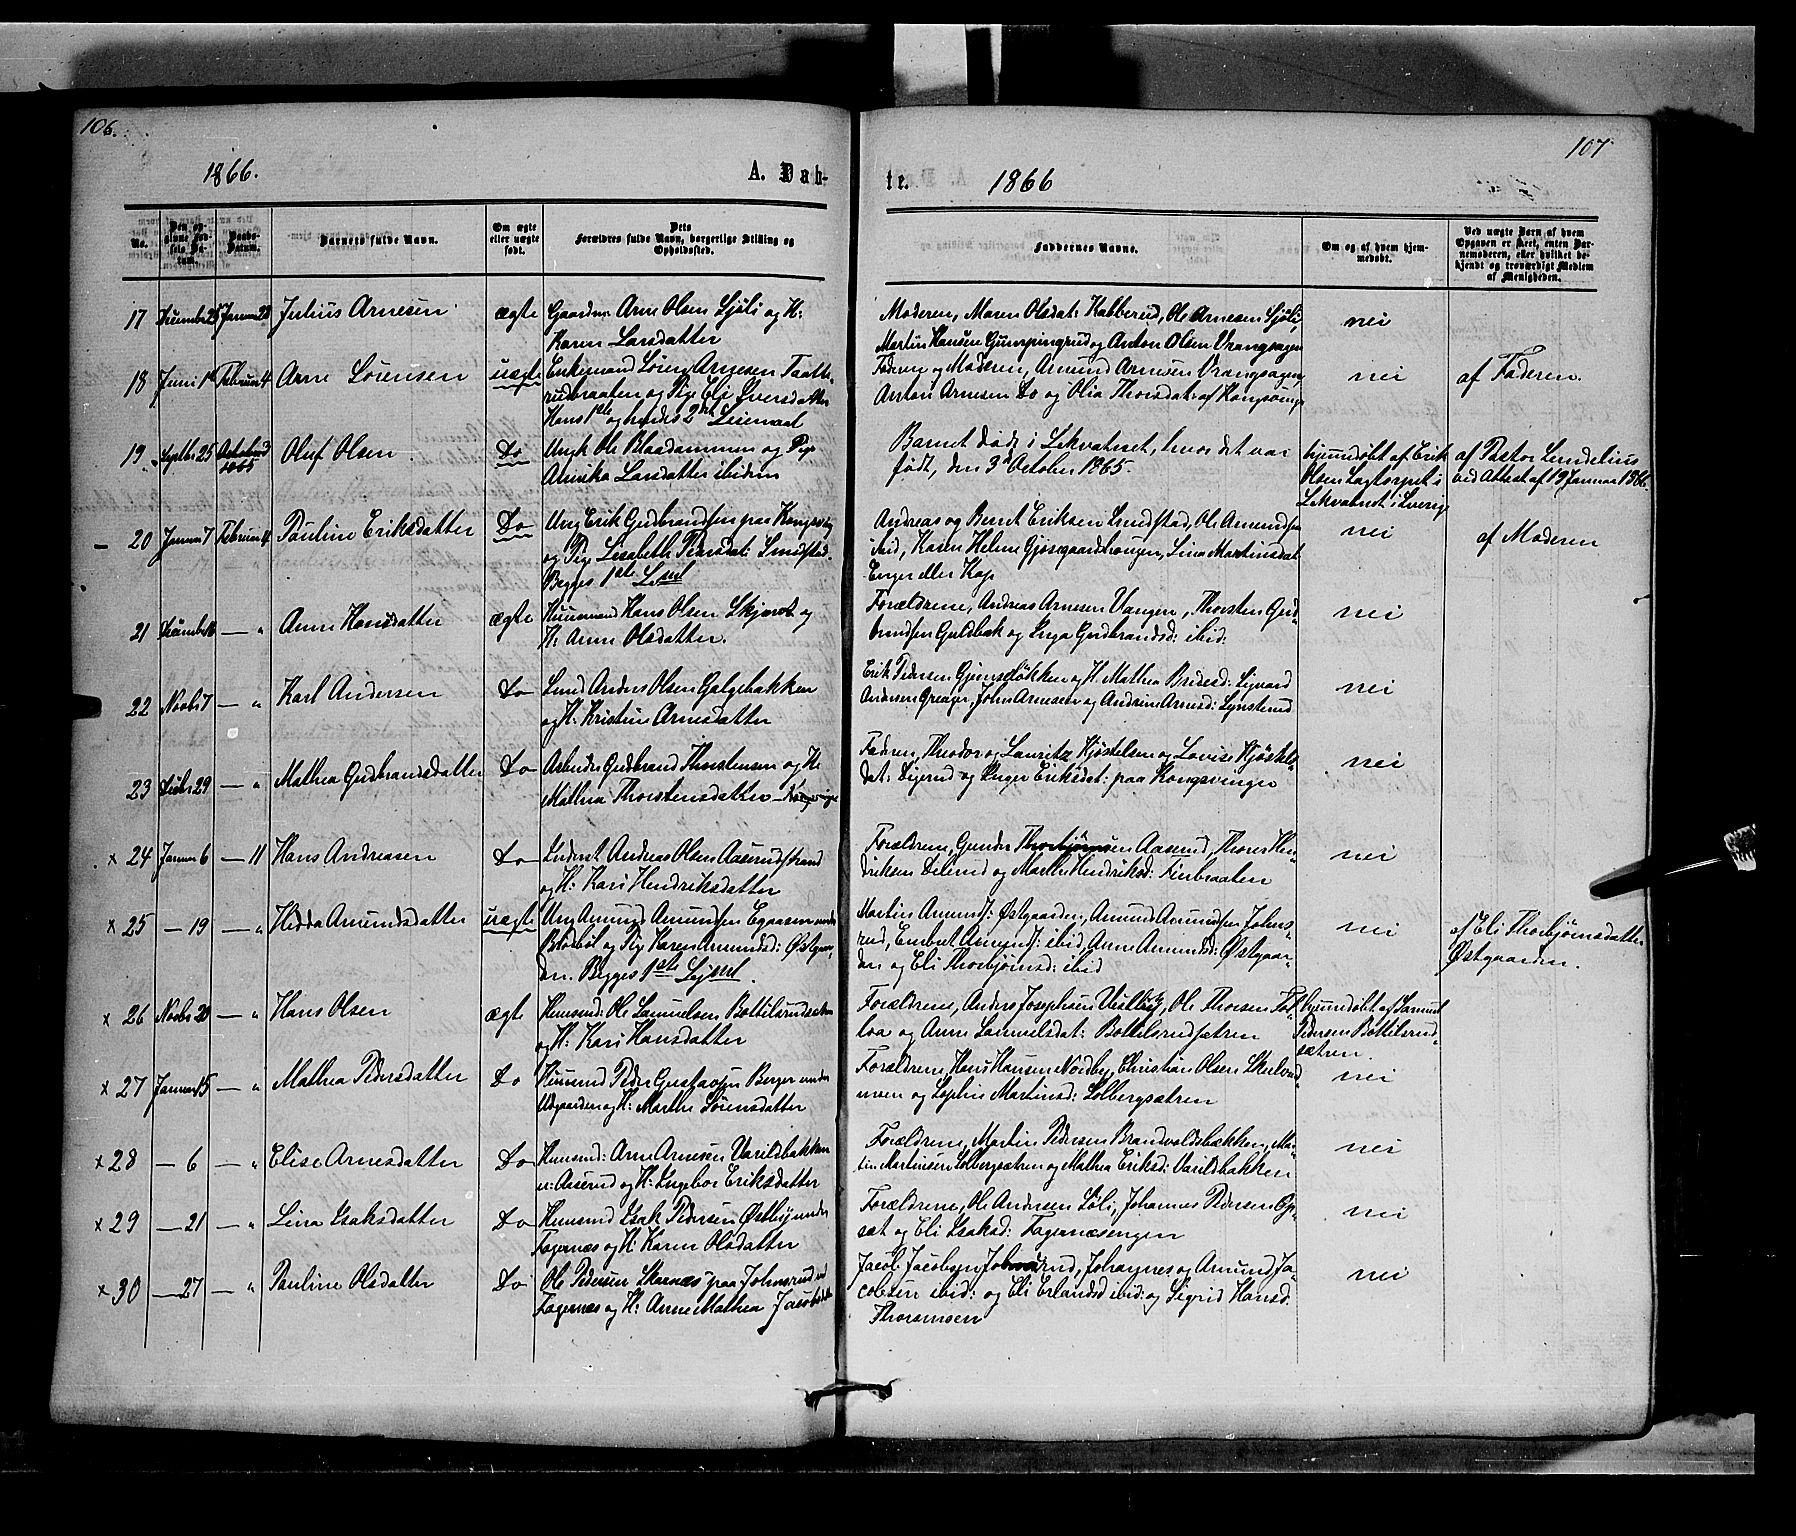 106.
1866.
A. Dab-
No.
Den op-
givne Fød-
sels Da-
tum.
Daabs-
Datum.
Barnets fulde Navn.
Om ægte
eller uægte
født.
Dets
Forældres fulde Navn, borgerlige Stilling og
Opholdssted.
17 December 25 Januar 28 Julius Arnesen ægte Gaardm: Arne Olsen Sjöli og H:
Karen Larsdatter
18 Juni Februar 4 Arne Sörensen uægte Enkemand Sören Arnesen Taatte-
rudbraaten og Pige Eli Iversdatter
Hans 1ste og hendes 2det Leiermaal
19 Septbr 25 October
1865 Oluf Olsen Do Ungk Ole Blaadammen og Pige
Annika Larsdatter ibidem
20 Januar 7 Februar 4 Pauline Eriksdatter Do Ung Erik Gudbrandsen paa Kongsving
og Pige Lisabeth Pedersdat: Smidstad.
Begges 1ste
21 December 16 — " Anne Hansdatter ægte Huusmand Hans Olsen Skjæret og
H: Anne Olsdatter.
22 Novbr 7 — " Karl Andersen Do Anders Olsen Galgebakken
og H: Kristine Arnesdatter
23 Decbr 29 — " Mathea Gudbrandsdatter Do Arbeider Gudbrand Thorstensen og H:
Mathea Thorstensdatter — Kongsvinger
× 24 Januar 6 — 11 Hans Andreasen Do Inderst Andreas Olsen Aaserudstrand
og H: Kari Hendriksdatter
× 25 — 19 — " Hedda Amundsdatter uægte Ung Amund Amundsen Egaasen under
og Pig Karen Amundsd: Østgaar-
den. Begges 1ste
× 26 Novbr 20 — " Hans Olsen ægte Huusmd: Ole Samuelsen Bottilsrudsætren
og H: Kari Hansdatter
× 27 Januar 15 — " Mathea Pedersdatter Do Huusmd Peder Gustavsen Berger under
Udgaarden og H: Marthe Sörensdatter
× 28 — 6 — " Elise Arnesdatter Do Huusmd: Arne Arnesen Varildbakken
u: Aaserud og H: Ingebor Eriksdatter
× 29 — 21 — " Lina Isaksdatter Do Huusmd Isak Pedersen Østby under
Fagernæs og H: Karen Olsdatter
× 30 — 27 — " Pauline Olsdatter Do Ole Pedersen Skarnæs paa Johnsrud
Fagernæs og H: Anne Mathea Jacobsdatter
107
te.
1866
Faddernes Navne.
Om og af hvem hjem-
medøbt.
Ved uægte Børn af hvem
Opgaven er skeet, enten Bar-
nemoderen, eller hvilket be-
kjendt og troværdigt Medlem
af Menigheden.
Moderen, Maren Olsdat: Kabberud, Ole Arnesen Sjöli, nei
Martin Hansen Gumpingrud og Anton Olsen Vrangsagen
Faderen og Moderen, Amund Arnesen Vrangsagen, nei af Faderen.
Anton Arnesen Do og Olia Thorsdat: af Kongsvinge
Barnet döde i Lekvatnet, hvor det var hjemmdöbt af Erik af Pastor Lundelius
födt, den 3die October 1865. Olsen Lagtorpet i ved Attest af 19 Januar 1866.
Lekvatnet i Sverige
Andreas og Bernt Eriksen Smidstad, Ole Amundsen nei af Moderen
ibid, Karen Helene Gjøsegaardshaugen, Lina Martinsdat
Enger eller Kap
Forældrene, Andreas Arnesen Vangen, Thorsten Gud- nei
brandsen Guldbak og Inga Gudbrandsd: ibid:
Erik Pedersen Gjemseløkken og H. Mathea Bredesd: Sigvard nei
Andersen Greager, John Arnesen og Andrine Arnesd:
Faderen, Theodor og Lauritz Kjöstelsen og Lovise Kjöstels- nei
dat: Digerud og Inger Eriksdat: paa Kongsvinger
Forældrene, Gunder Thorbjörnsen Aaserud, Thorer Hen- nei
driksen og Marthe Hendriksd: Finbraaten
Martin Amunds: Østgaarden, Amund Amundsen Johns- nei af Eli Thorbjörnsdatter
rud, Embret Amunds: ibid, Anne Amundsd: Østgaar- Østgaarden.
den og Eli Thorbjörnsd: ibid
Forældrene, Anders Josephsen Viulby, Ole Thorsen hjemmdöbt af Samuel
og Anne Samuelsdat: Bottilsrudsætren Pedersen Bottilsrud-
sætren.
Forældrene, Hans Hansen Nordby, Christian Olsen nei
moen og Sophie Martinsd: Solbergsætren
Forældrene, Martin Pedersen Brandvoldsbækken, Mar- nei
tin Martinsen Solbergsætren og Mathea Eriksd: Varildbakken
Forældrene, Ole Andersen Söli, Johannes Pedersen Op- nei
sæt og Eli Isaksd: Fagernæsengen
Jacob Jacobsen Johnsrud, Johannes og Amund Ja- nei
cobsen ibid: og Eli Erlandsd ibid: og Sigrid Hansd:
Thoramoen